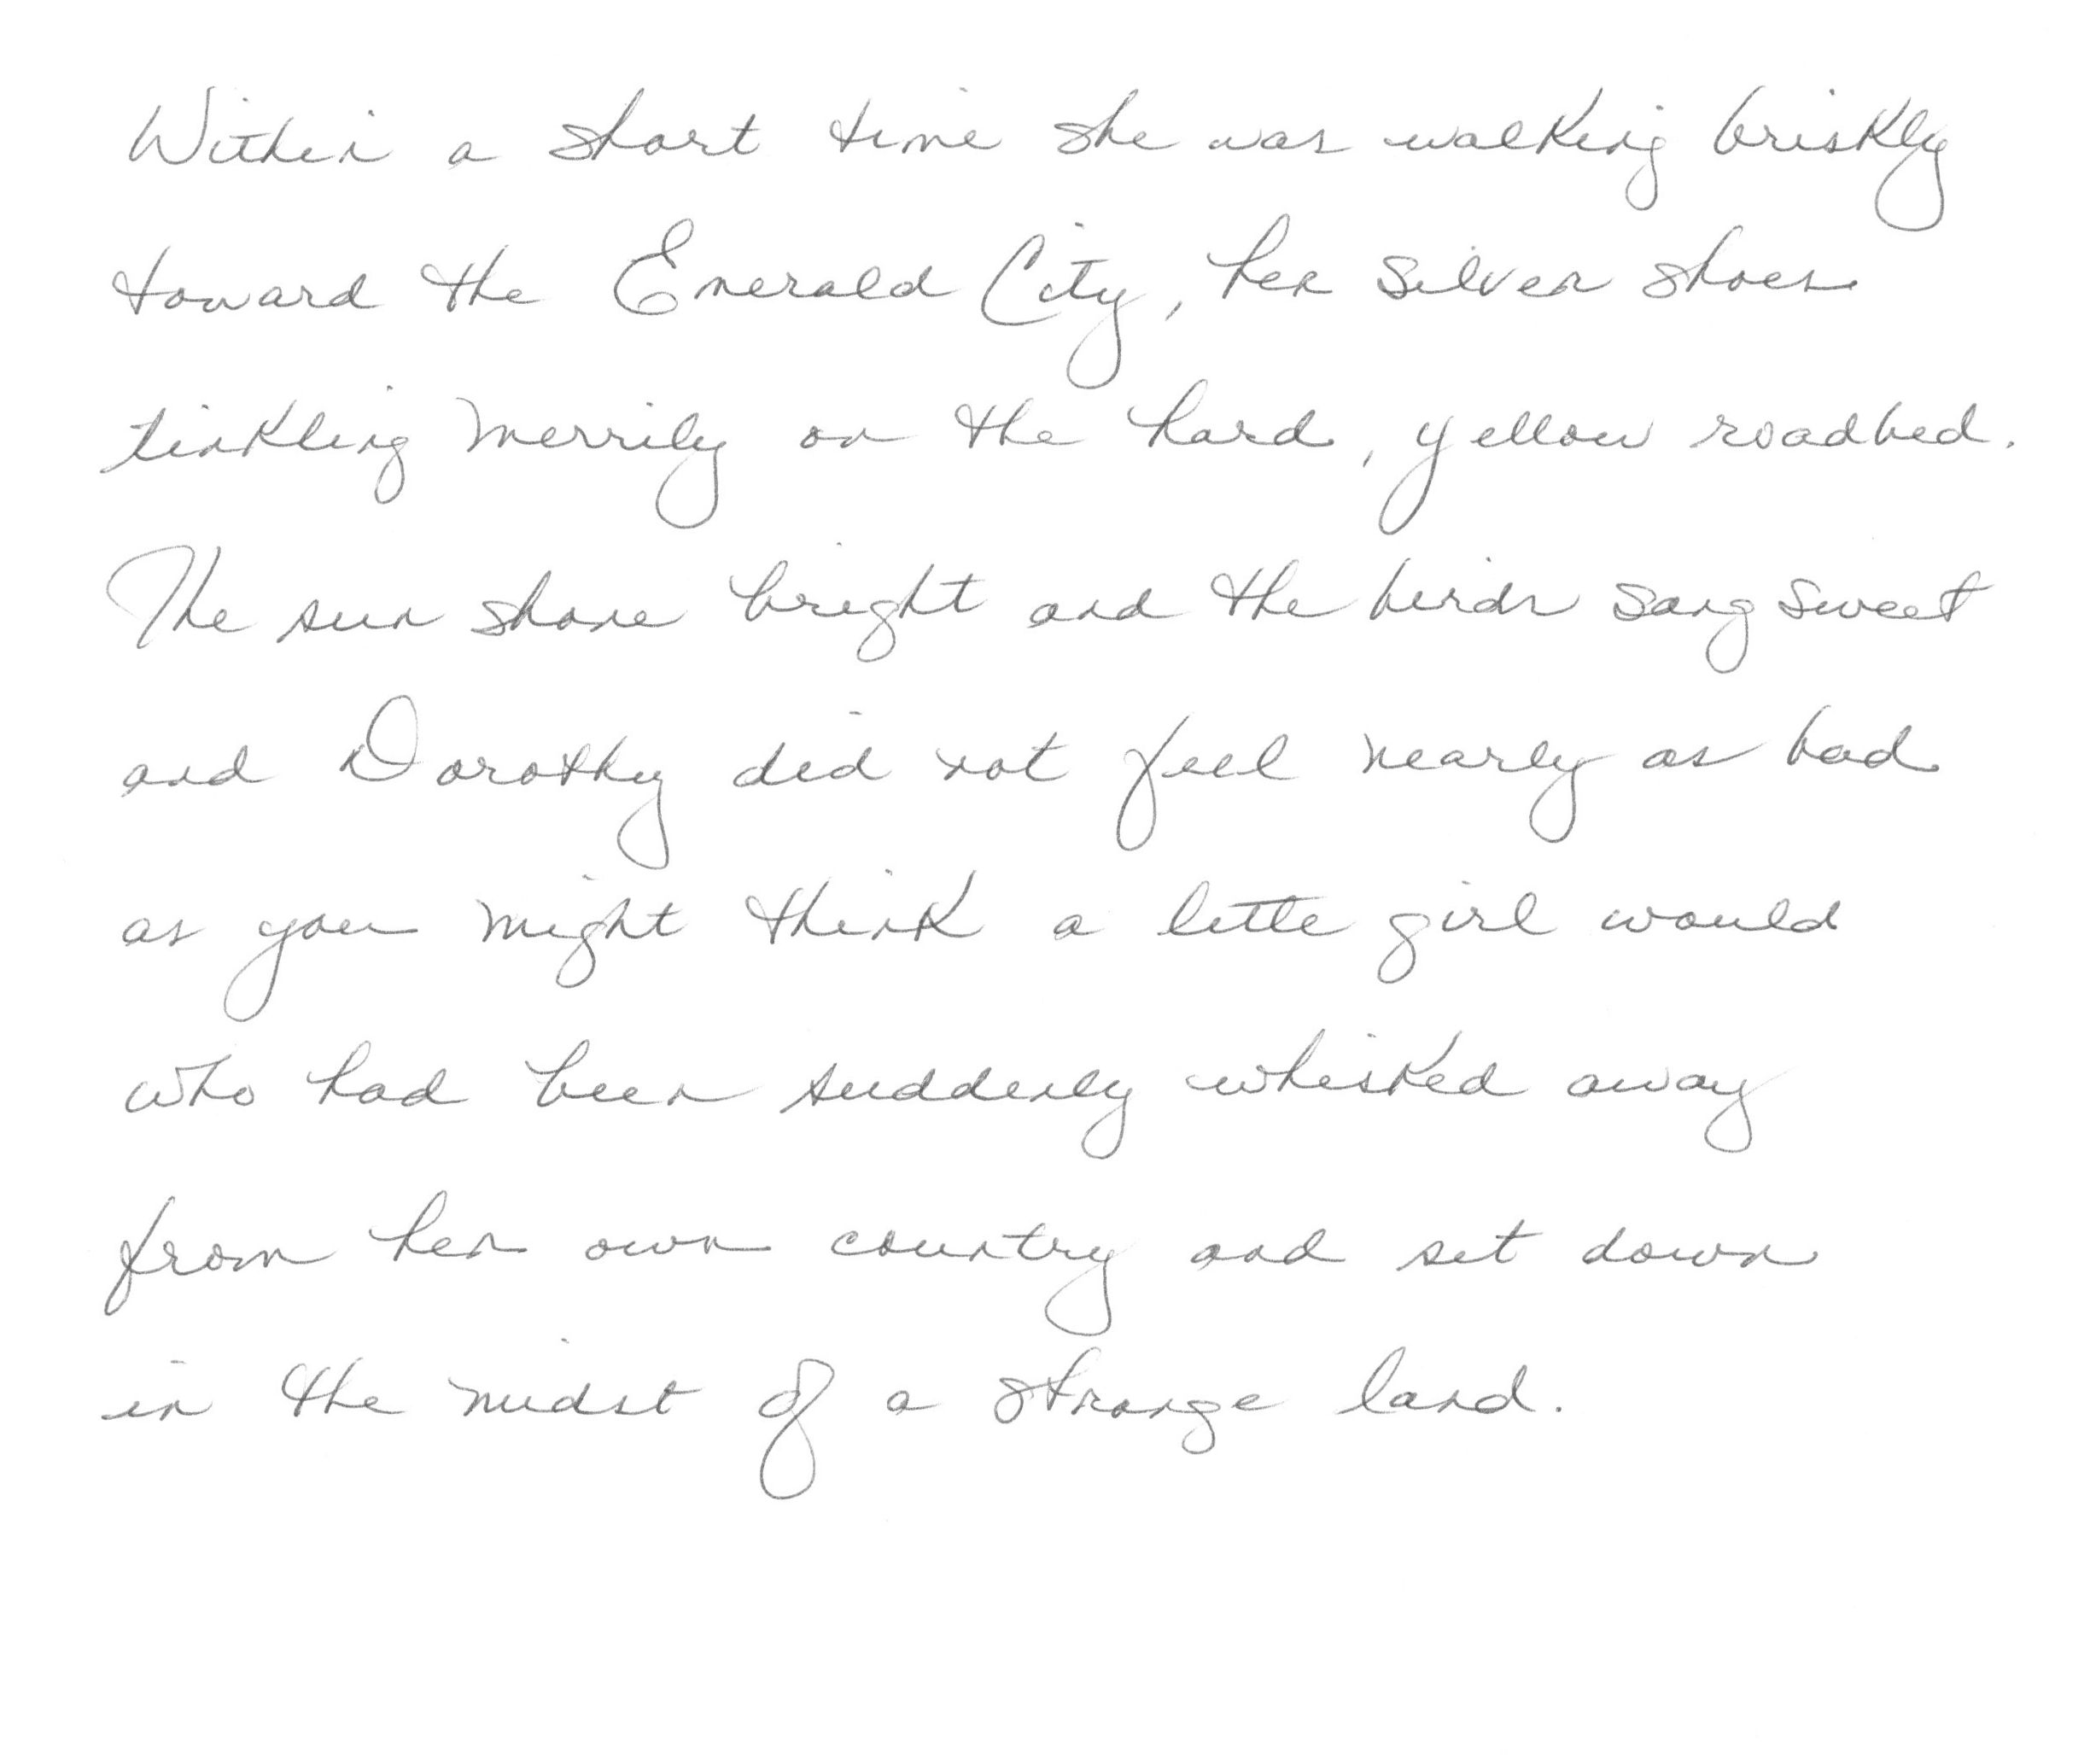 Within a short time she was walking briskly
toward the Emerald City, her silver shoes
tinkling merrily on the hard, yellow roadbed.
The sun shone bright and the birds sang sweet
and Dorothy did not feel nearly as bad
as you might think a little girl would
who had been suddenly whisked away
from her own country and set down
in the midst of a strange land.